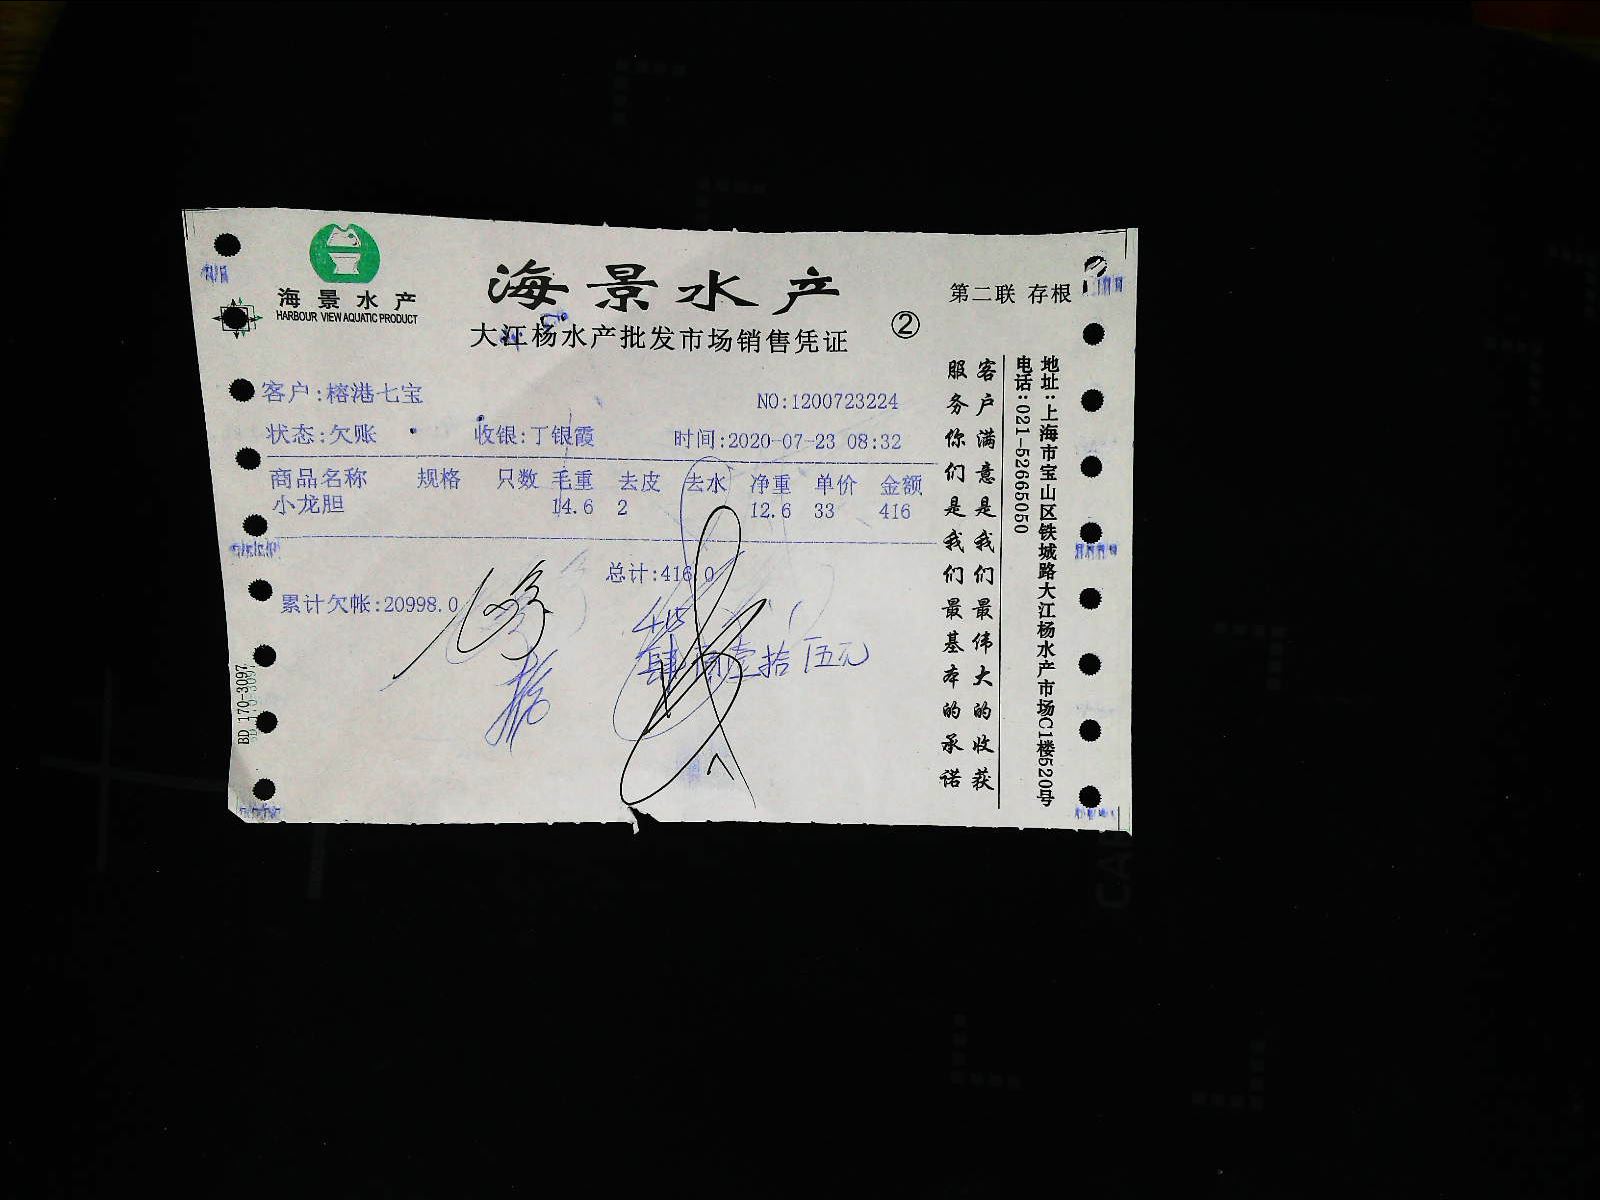 海景水产
HARBOUR VIEW AQUATIC PRODUCT
海景水产
大江杨水产批发市场销售凭证
②
第二联 存根
客户:榕港七宝
NO:1200723224
状态:欠账 收银:丁银霞 时间:2020-07-23 08:32
商品名称 规格 只数 毛重 去皮 去水 净重 单价 金额
小龙胆 14.6 2 12.6 33 416
总计:416.0
累计欠帐:20998.0
415
肆佰壹拾伍元
客户满意是我们最伟大的收获
服务你们是我们最基本的承诺
地址:上海市宝山区铁城路大江杨水产市场C1楼520号
电话:021-52665050
BD 170-3097